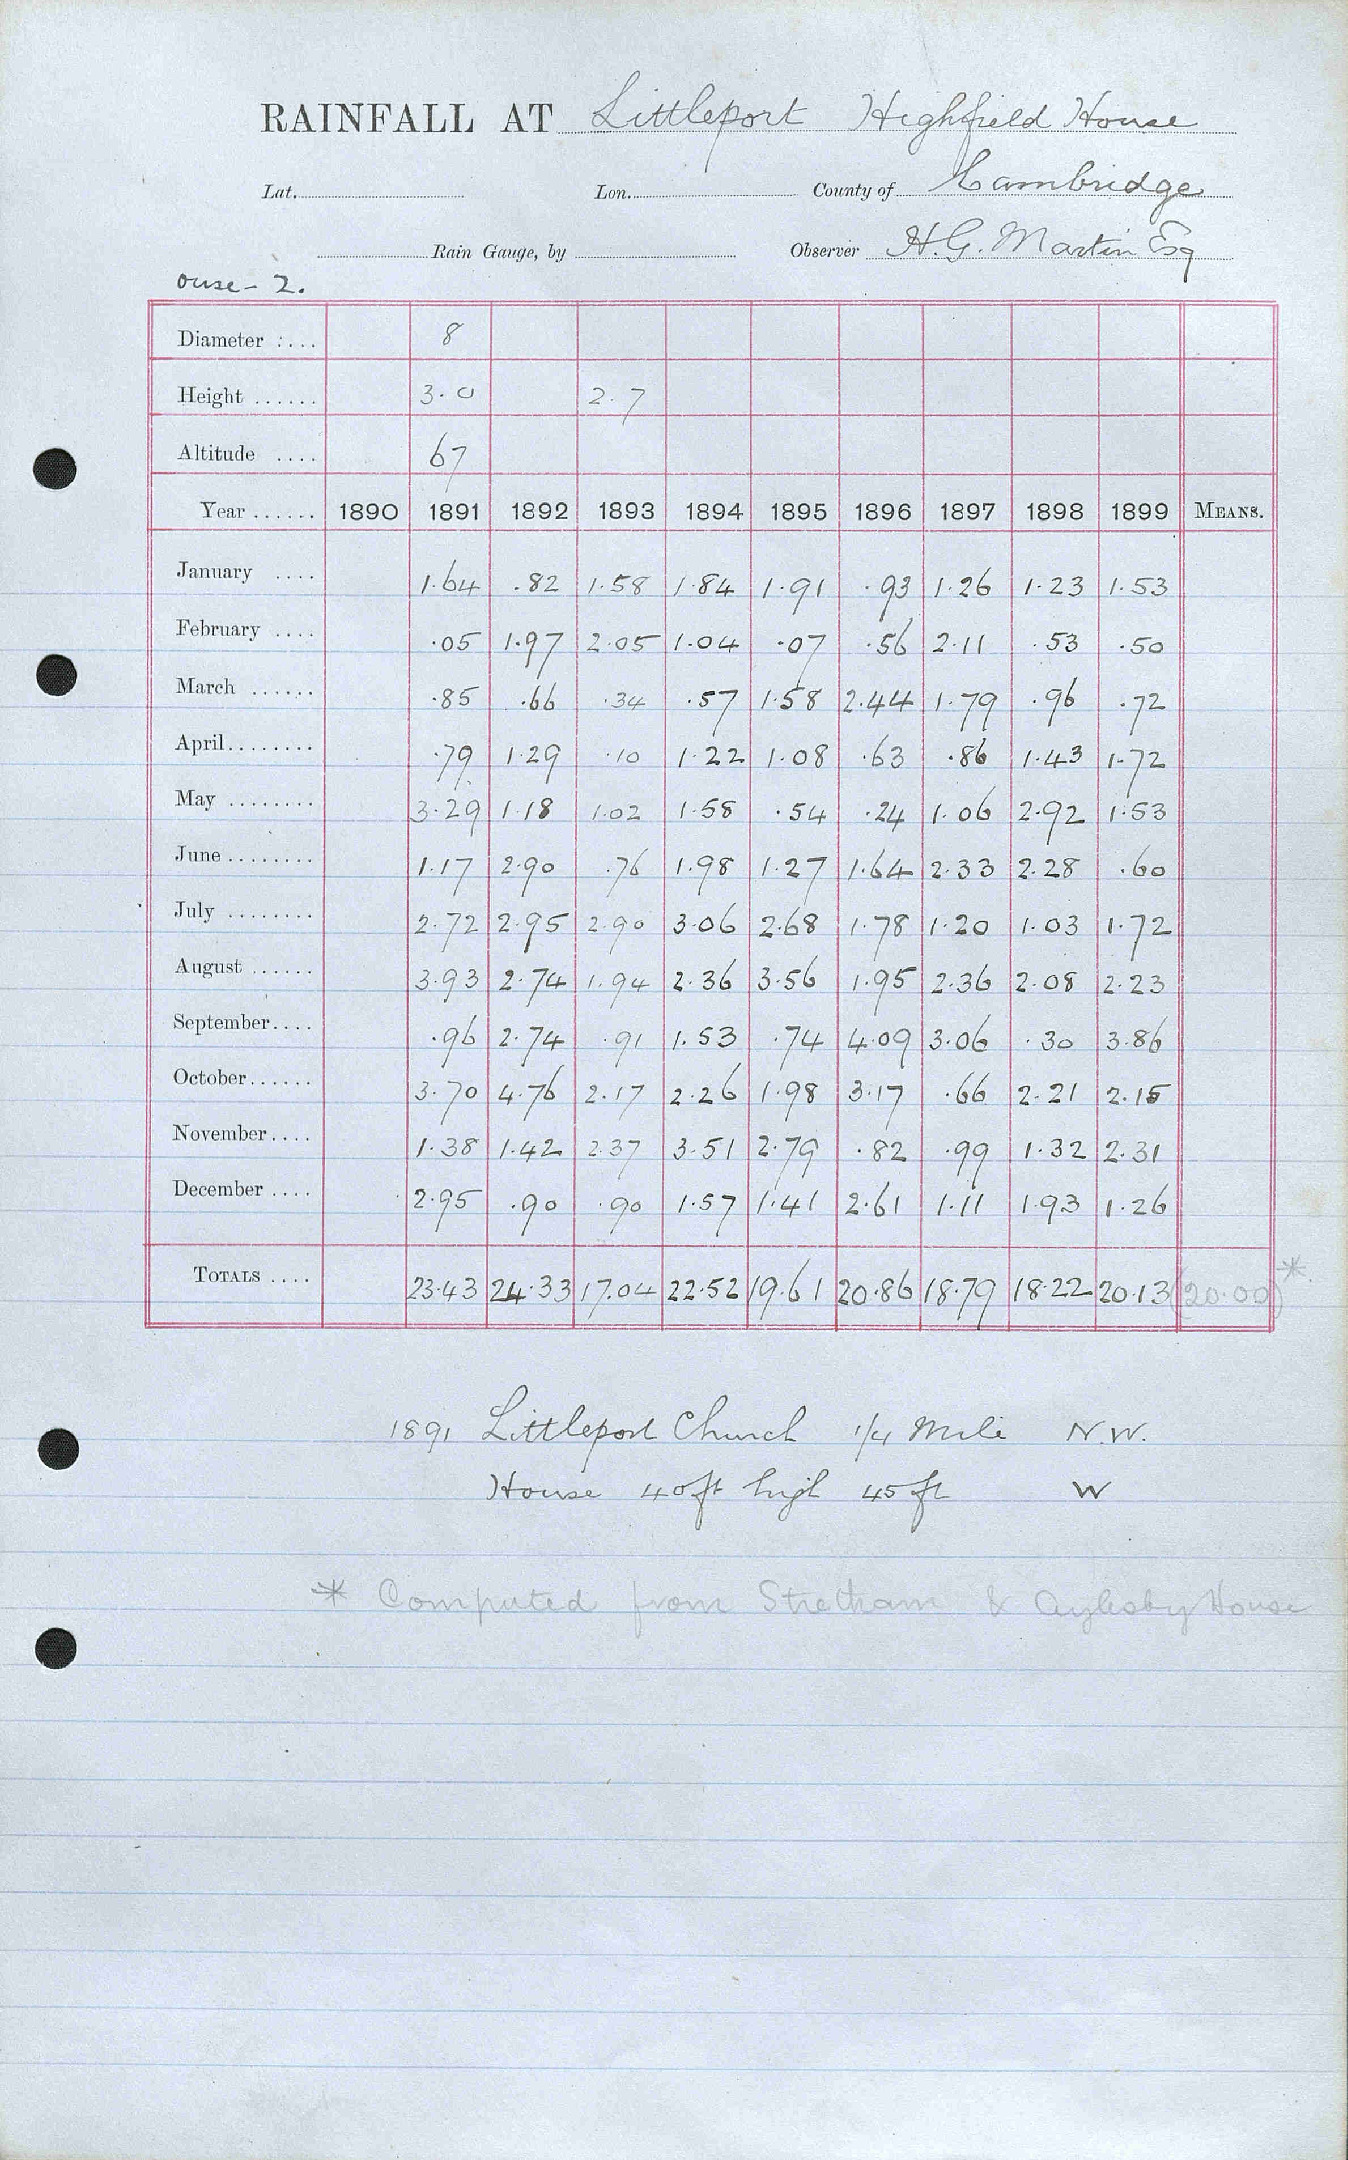 RAINFALL AT Littleport Highfield House
Lat. Lon. County of Cambridge
Rain Gauge, by Observer H.G. Martin Esq
Ouse - 2.
Diameter .... 8
Height ...... 3.0 2.7
Altitude .... 67
Year ...... 1890 1891 1892 1893 1894 1895 1896 1897 1898 1899 MEANS.
January .... 1.64 .82 1.58 1.84 1.91 .93 1.26 1.23 1.53
February .... .05 1.97 2.05 1.04 .07 .56 2.11 .53 .50
March ...... .85 .66 .34 .57 1.58 2.44 1.79 .96 .72
April........ .79 1.29 .10 1.22 1.08 .63 .86 1.43 1.72
May ........ 3.29 1.18 1.02 1.58 .54 .24 1.06 2.92 1.53
June ........ 1.17 2.90 .76 1.98 1.27 1.64 2.33 2.28 .60
July ........ 2.72 2.95 2.90 3.06 2.68 1.78 1.20 1.03 1.72
August ...... 3.93 2.74 1.94 2.36 3.56 1.95 2.36 2.08 2.23
September.... .96 2.74 .91 1.53 .74 4.09 3.06 .30 3.86
October...... 3.70 4.76 2.17 2.26 1.98 3.17 .66 2.21 2.15
November.... 1.38 1.42 2.37 3.51 2.79 .82 .99 1.32 2.31
December .... 2.95 .90 .90 1.57 1.41 2.61 1.11 1.93 1.26
TOTALS .... 23.43 24.33 17.04 22.52 19.61 20.86 18.79 18.22 20.13 (20.00)*
1891 Littleport Church 1/4 Mile N.W.
House 40 ft high 45 ft W
* Computed from Stretham & Aylesby House